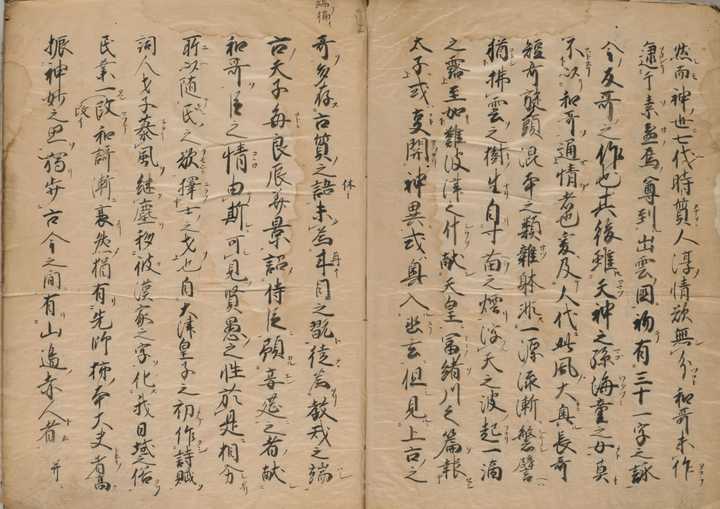 然而神世七代時質人淳情欲無分和哥未作
逮于素盞烏尊到出雲国初有三十一字之詠
今反哥之作也其後雖天神之孫海童之女莫
不以和哥通情者也爰及人代此風大興長哥
短哥旋頭混本之類雜躰非一源流漸繁譬
猶拂雲之樹生自寸苗之煙浮天之波起一滴
之露至如難波津之什献天皇冨緒川之篇報
太子或事関神異或興入幽玄但見上古之
哥多存古質之語未為耳目之翫徒為教戒之端
古天子每良辰美景詔侍臣預宴莚之者献
和哥君臣之情由斯可見賢愚之性於是相分
所以随民之欲擇士之才也自大津皇子之初作詩賦
詞人才子慕風継塵移彼漢家之字化我日域之俗
民業一改和謌漸衰然猶有先師柿本大夫者高
振神妙之思獨歩古今之間有山邊赤人者并